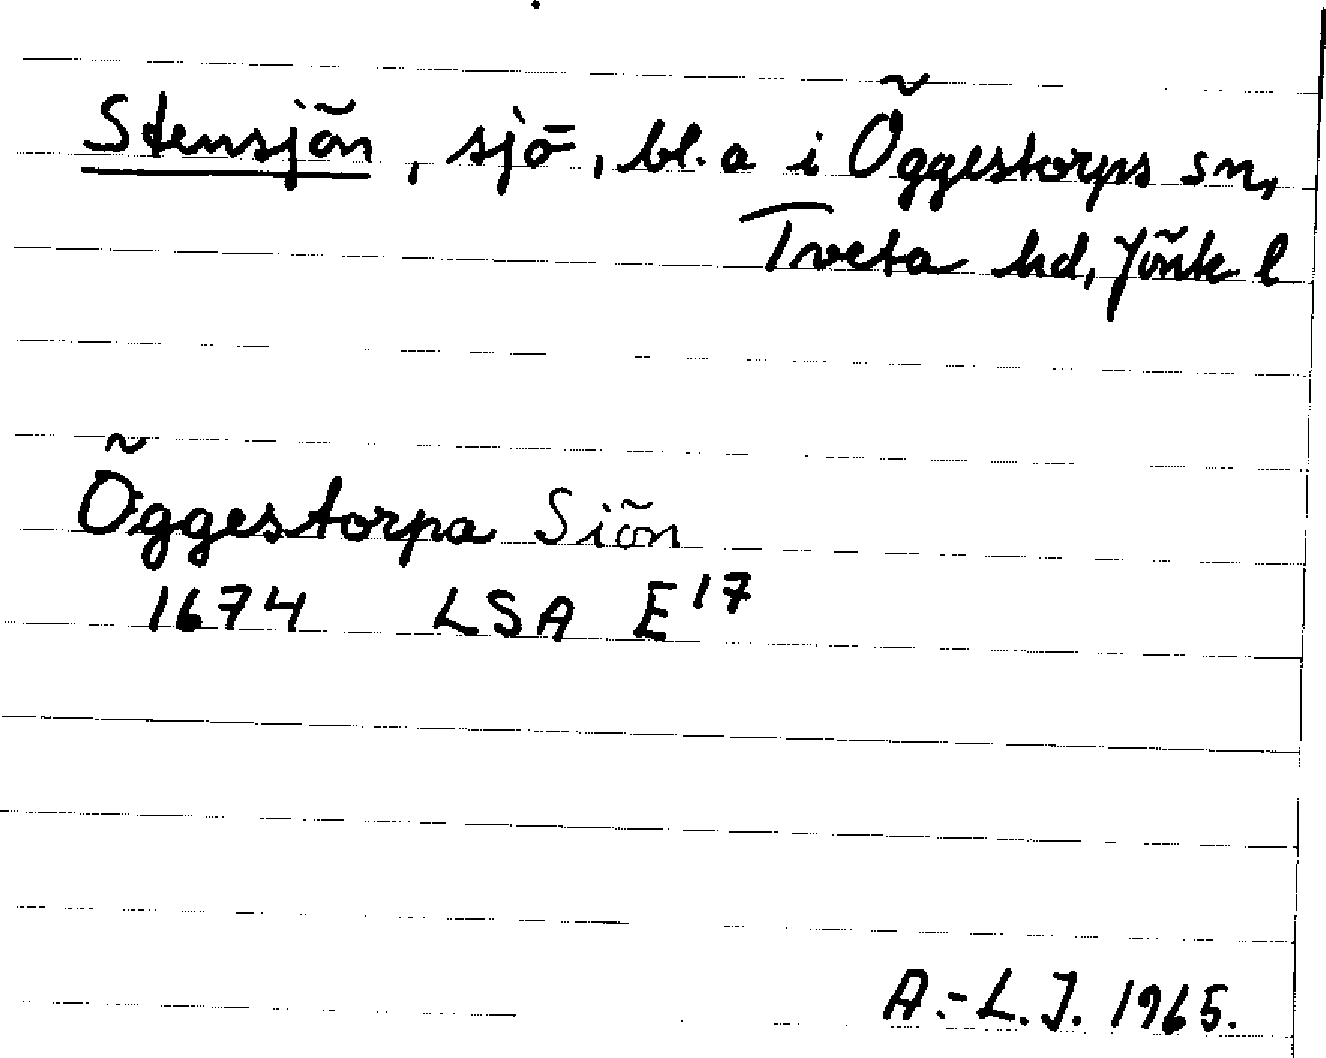 Stensjön, sjö, bl. a i Öggestorps sn,
Tveta hd, Jönk l
Öggestorpa Siön
1674 LSA E17
A.-L.J. 1965.